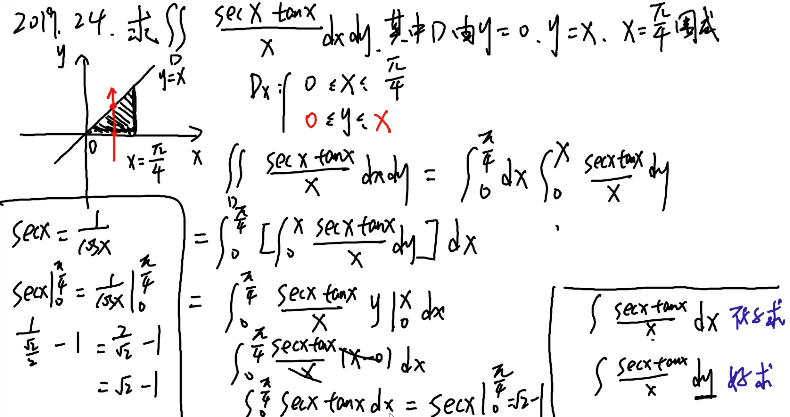 2019. 24. 求 ∬_D (secx tanx)/x dxdy, 其中D由y=0, y=x, x=π/4围成
y
y=x
0
x=π/4
x
Dx: { 0≤x≤π/4
0≤y≤x
∬_D (secx tanx)/x dxdy = ∫_0^{π/4} dx ∫_0^x (secx tanx)/x dy
= ∫_0^{π/4} [∫_0^x (secx tanx)/x dy] dx
= ∫_0^{π/4} (secx tanx)/x y|_0^x dx
∫_0^{π/4} (secx tanx)/x (x-0) dx
∫_0^{π/4} secx tanx dx = secx|_0^{π/4} = √2-1
secx = 1/cosx
secx|_0^{π/4} = 1/cosx|_0^{π/4}
1/(√2/2) - 1 = 2/√2 - 1
= √2 - 1
∫ (secx tanx)/x dx 不好求
∫ (secx tanx)/x dy 好求